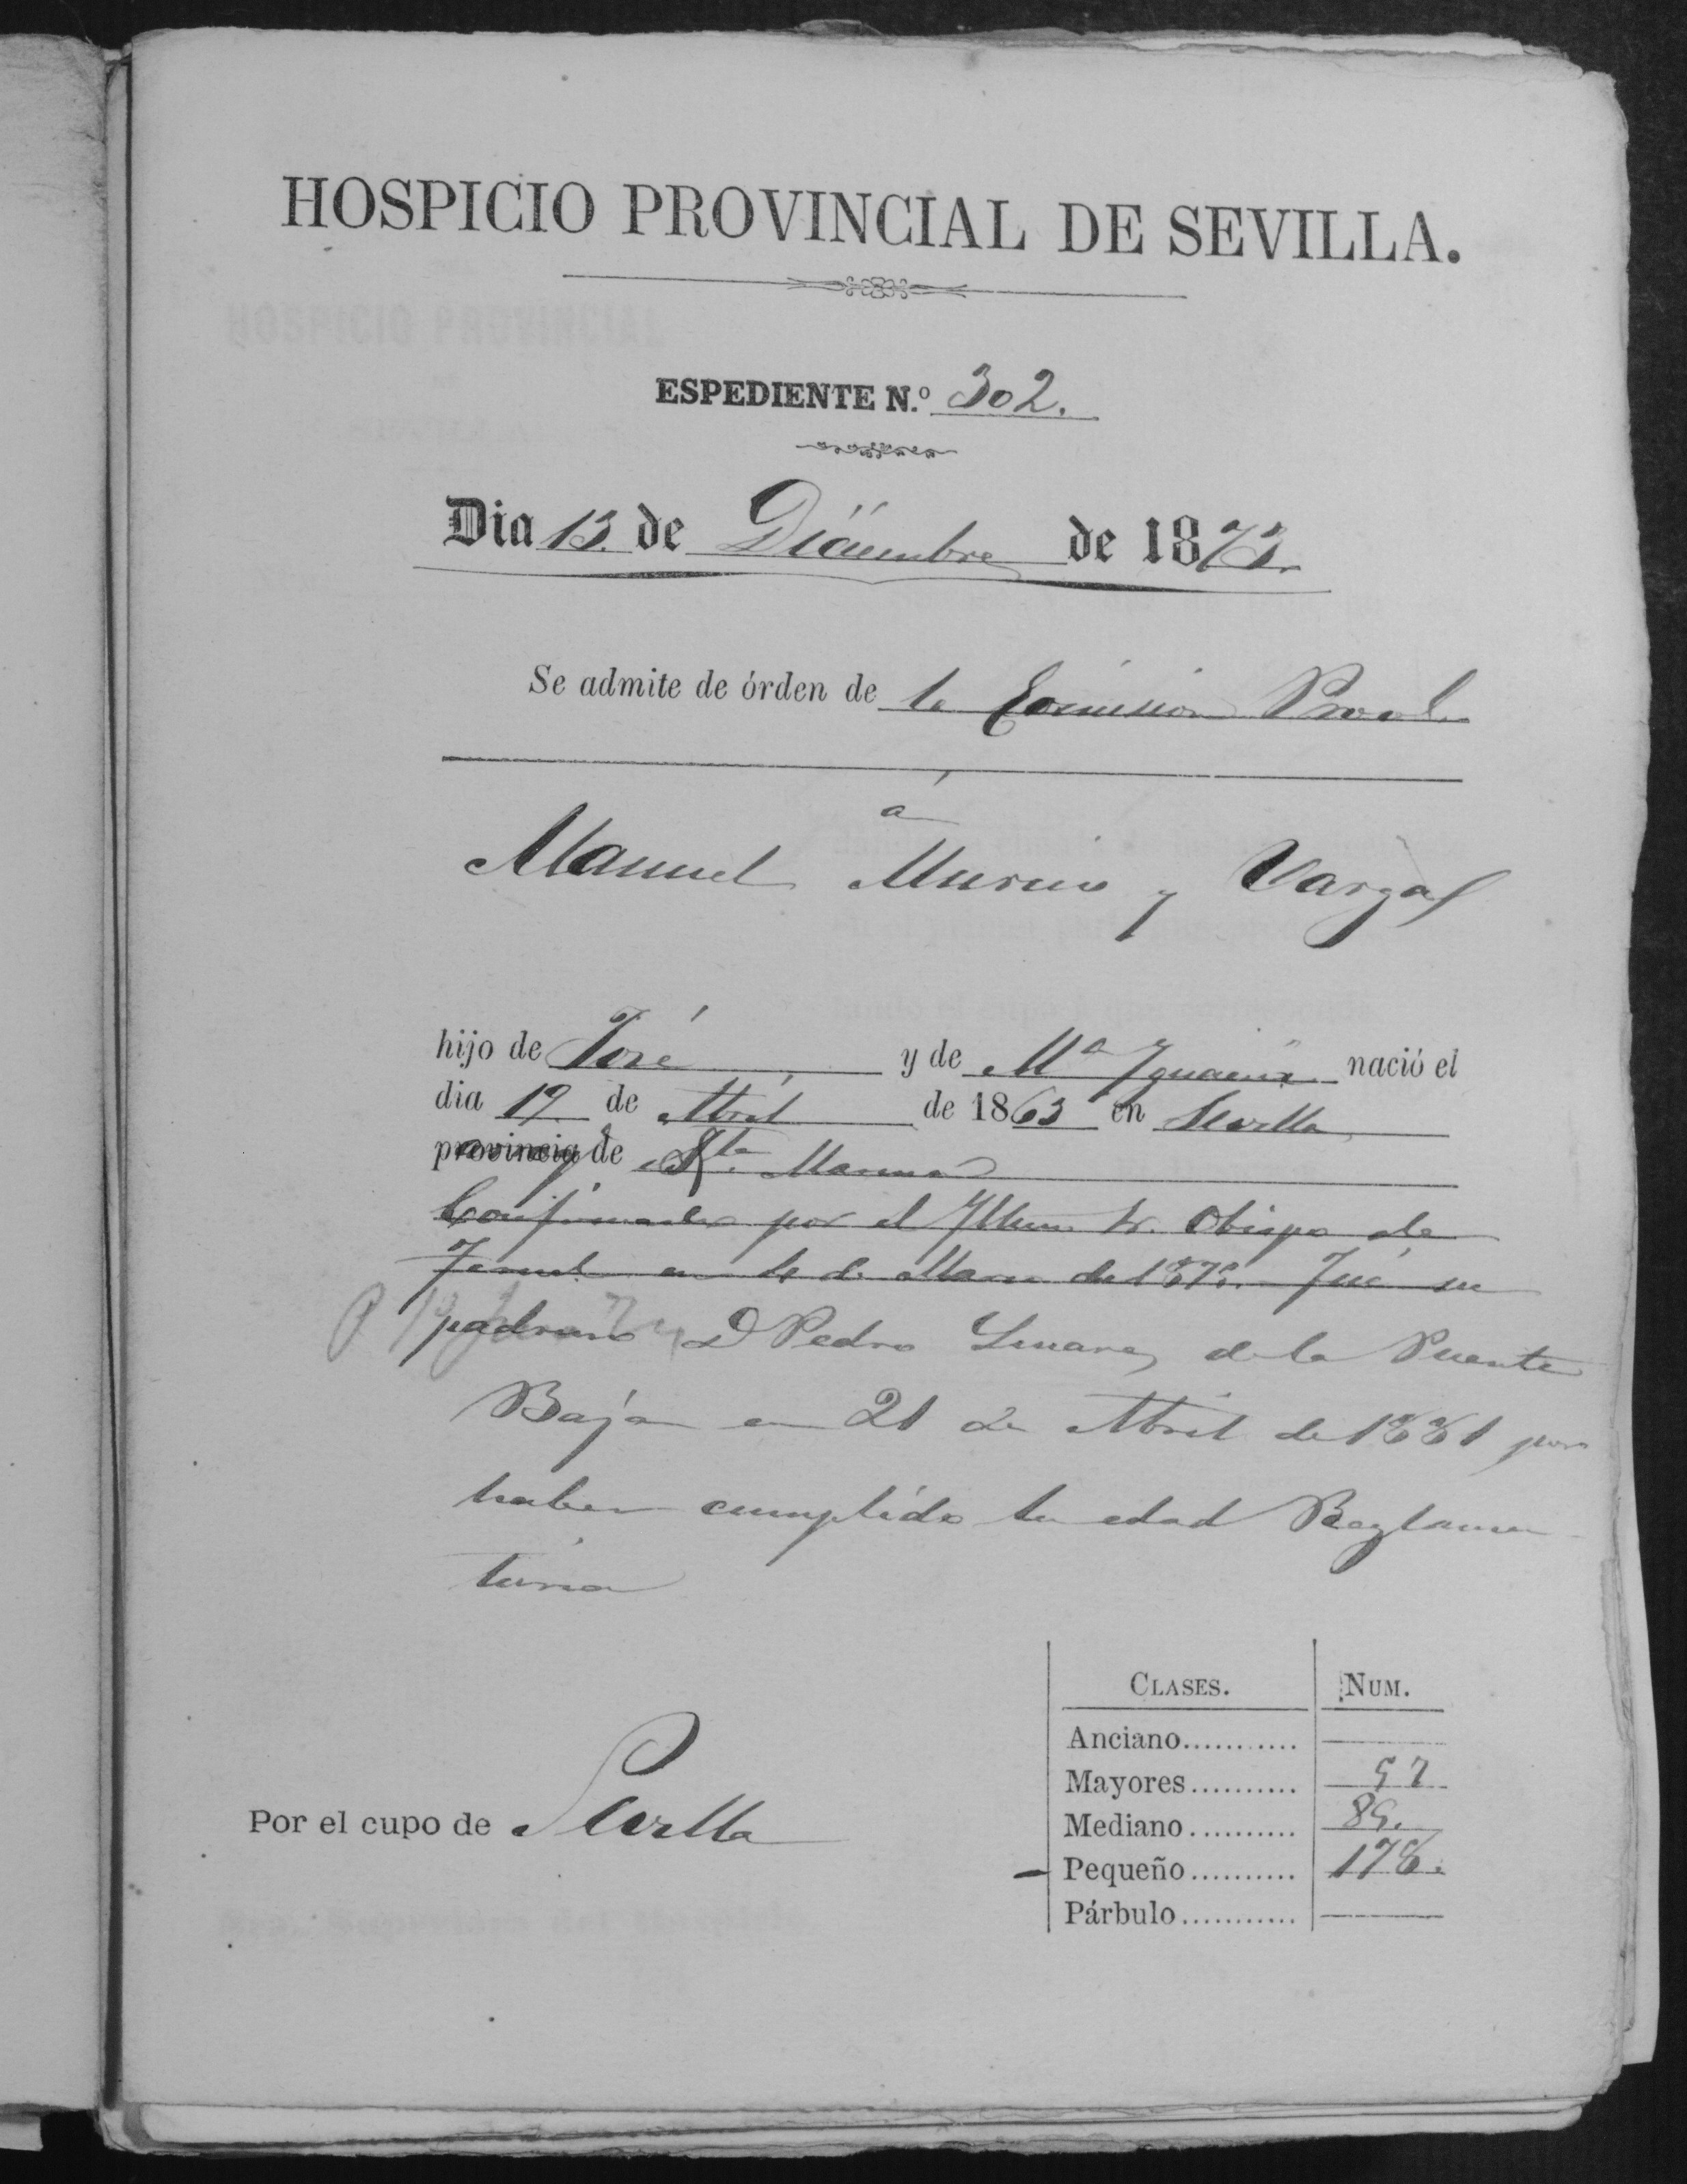 HOSPICIO PROVINCIAL DE SEVILLA.
ESPEDIENTE N.º 302.
Dia 13. de Diciembre de 1873.
Se admite de órden de la Comision Provl.
á
Manuel Murcio y Vargas
hijo de José y de Mª Ygnacia nació el
dia 19 de Abril de 1863 en Sevilla
de Sta. Marina
Confirmado por el Yllmo Sr. Obispo de
Teruel en 4 de Marzo de 187 Fué su
padrino D Pedro Linares de la Puente
Baja en 21 de Abril de 1881 por
haber cumplido la edad Reglamen-
taria
CLASES. NUM.
Anciano...........
Mayores.......... 57
Mediano.......... 89.
Pequeño.......... 178.
Párbulo...........
Por el cupo de Sevilla